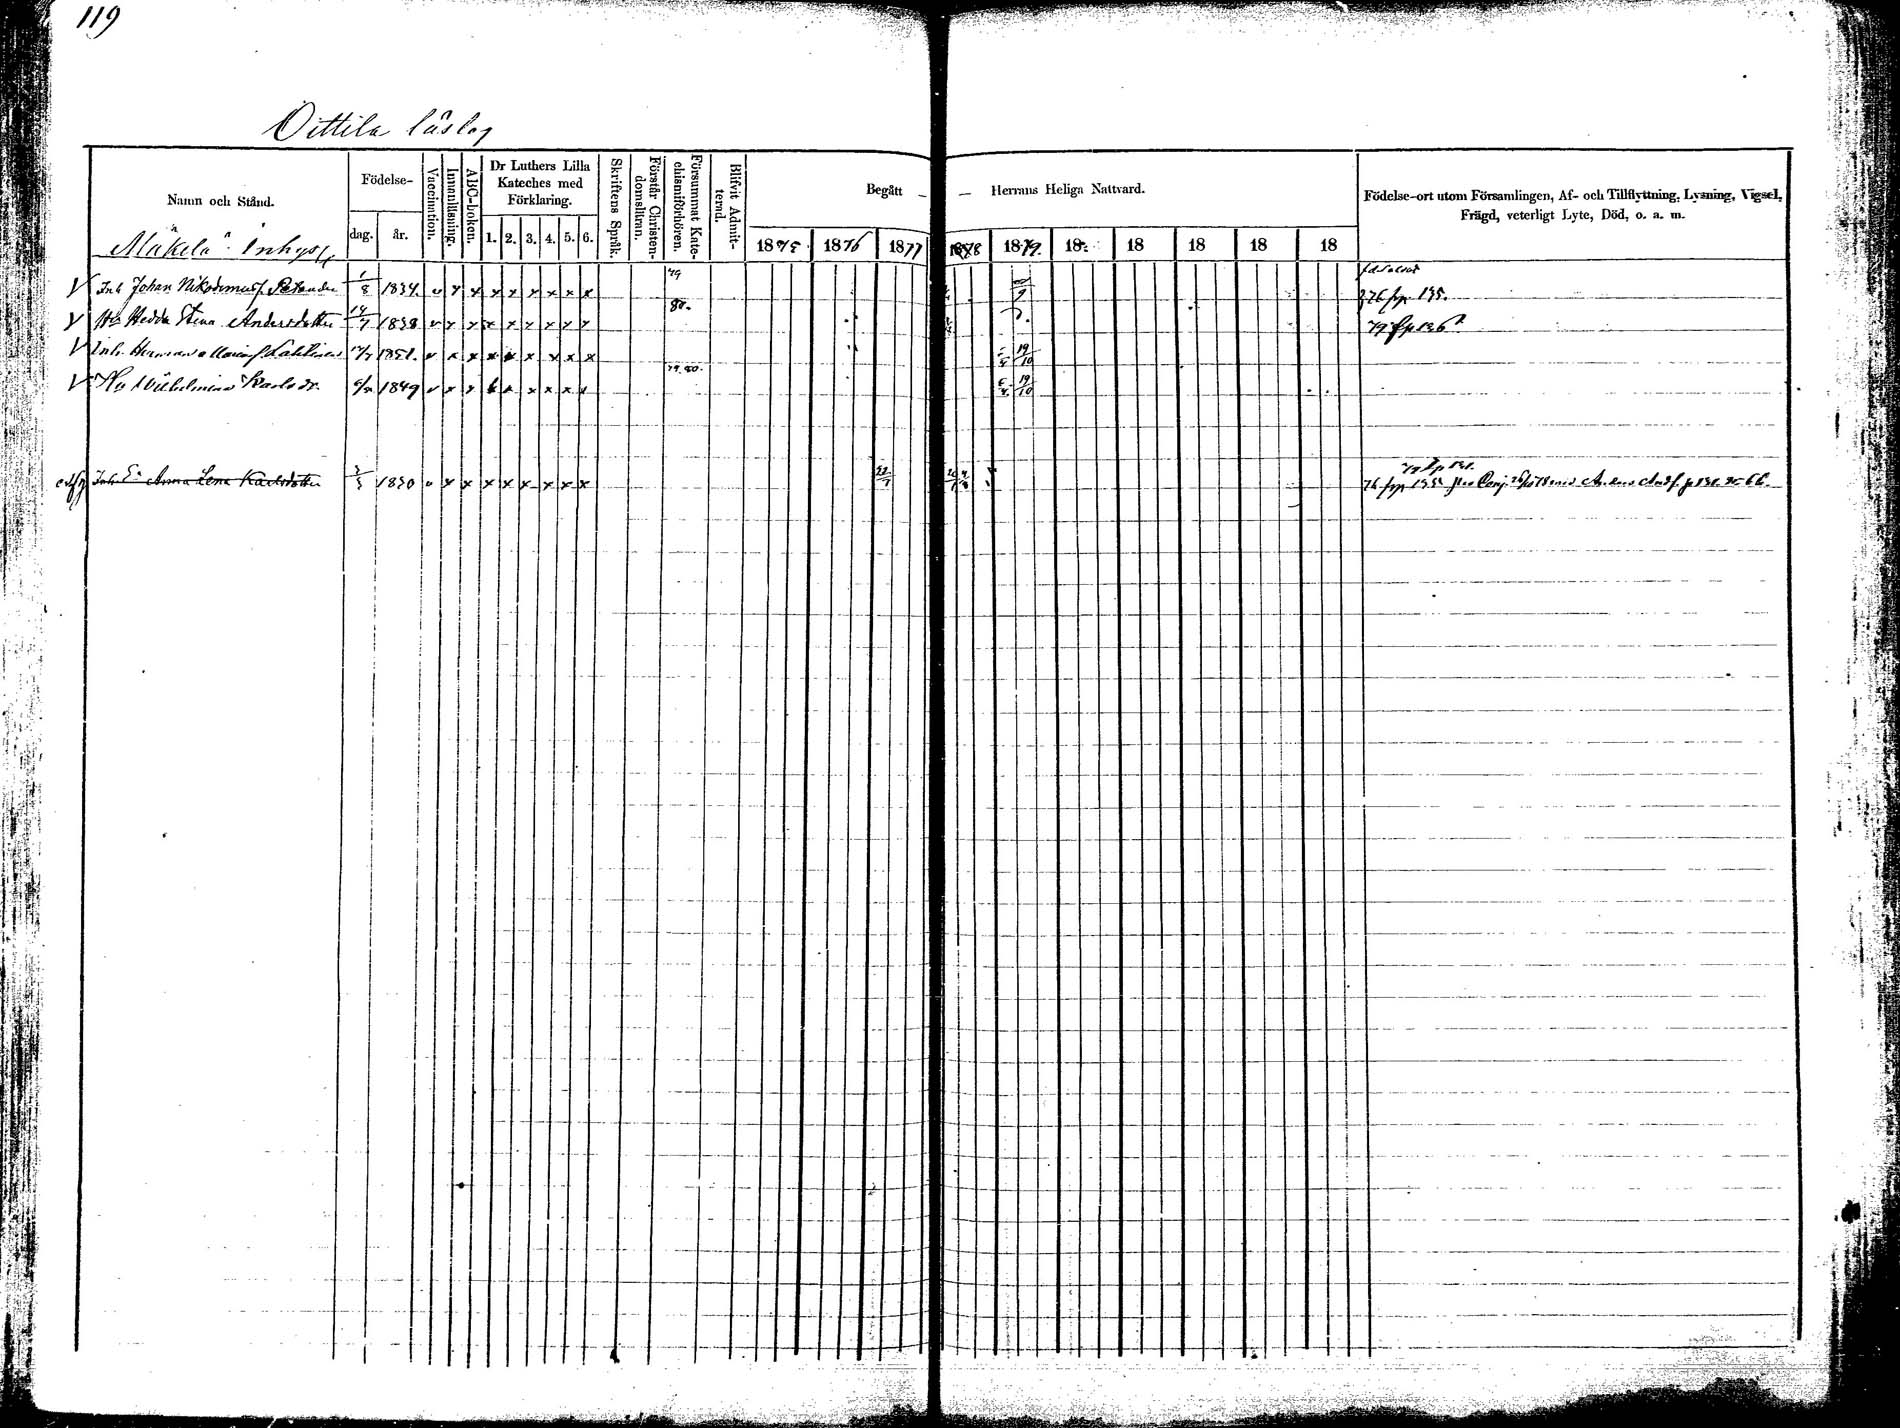 119
Oittila läslag
Namn och Stånd.
Födelse-
dag.
år.
Vaccination.
Innanläsning.
ABC-boken.
Dr Luthers Lilla
Kateches med
Förklaring.
1. 2. 3. 4. 5. 6.
Skriftens Språk.
Förstår Christen-
domsläran.
Försummat Kate-
chismiförhören.
Blifvit Admit-
terad.
Begått — — Herrans Heliga Nattvard.
1875 1876 1877 1878 1879. 18 18 18 18 18
Födelse-ort utom Församlingen, Af- och Tillflyttning, Lysning, Vigsel,
Frägd, veterligt Lyte, Död, o. a. m.
Mäkelä Inhys
79
V Inh Johan Nikodemusf 1/8 1834. v x x x x x x x x
76 fr p 135.
80.
V Hu Hedda Stina Andersdotter 14/7 1838 v x x x x x x x x
79 fr p 136
V Inh. Herman Lahtinen 1851. v x x x x x x x x 19/10
79. 80.
V Hu Vilhelmina Karlsdr. 1849 v x x x x x x x 19/10
Inh. E. Anna Lena Karlsdotter 1830 v x x x x x x x x 22/7
76 fr p 135 p 131. 66.